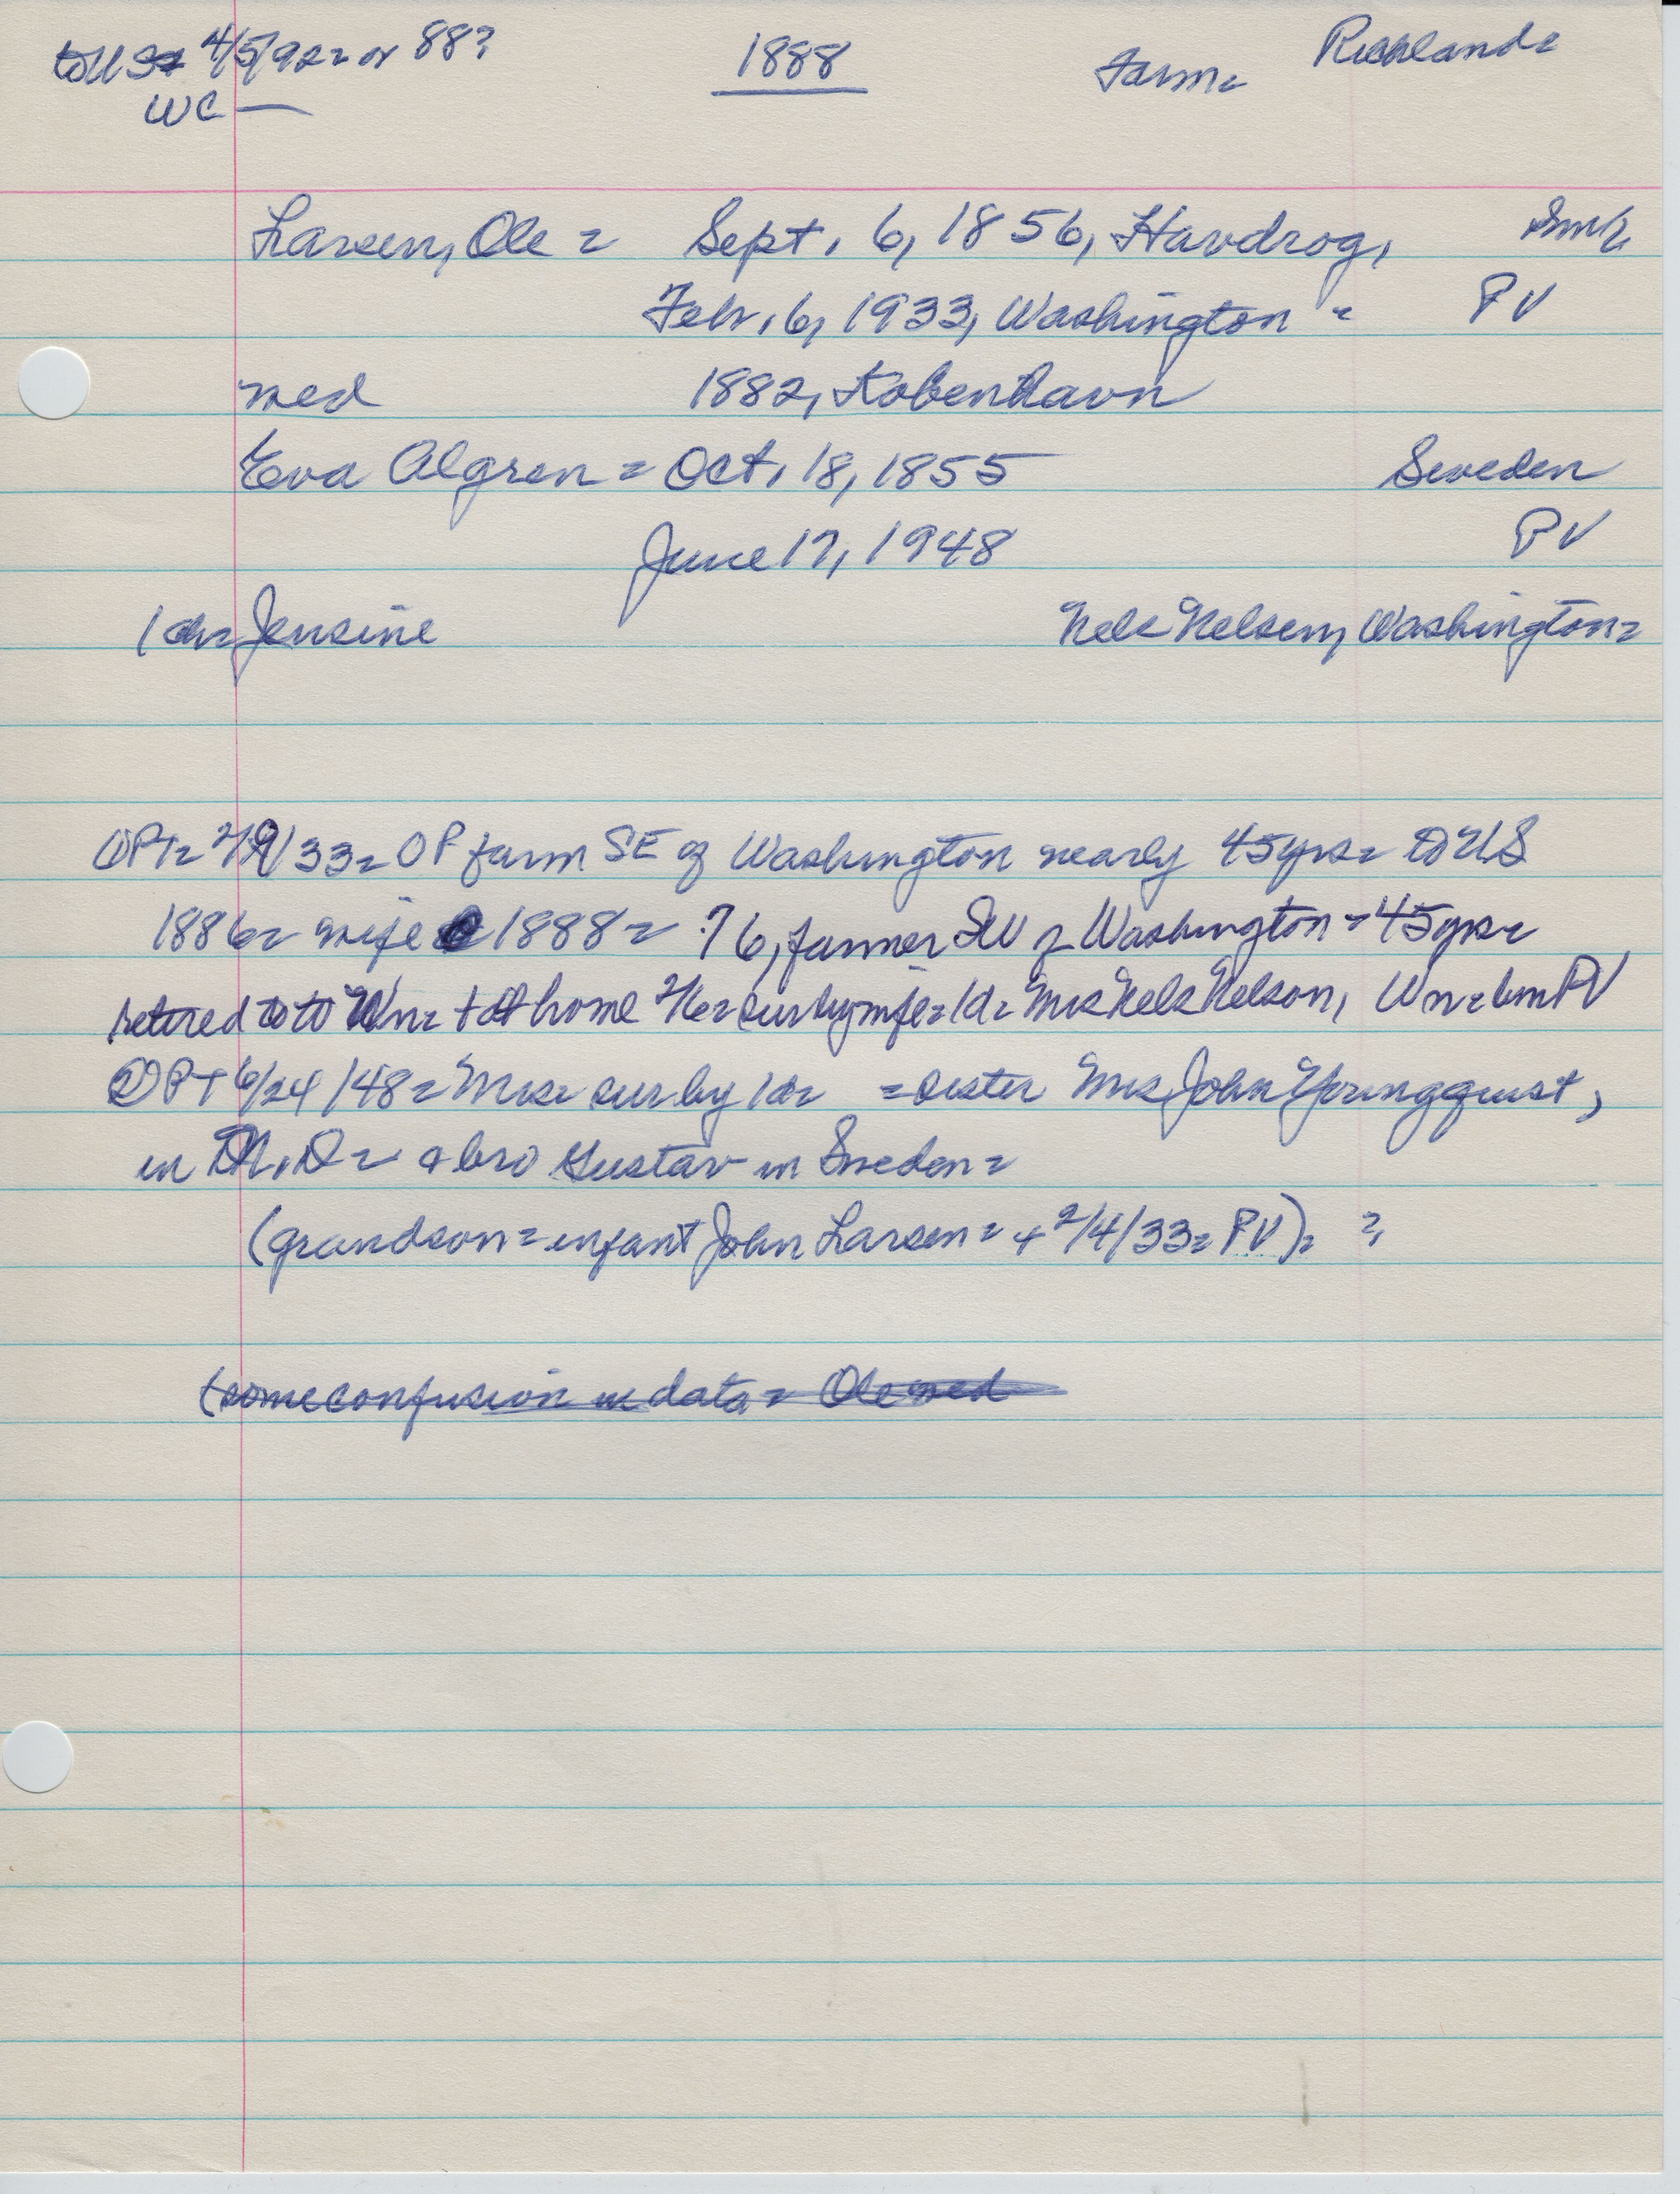 to US 4/5/92 = or 88?
1888
Farm =
Richland =
WC —
Larsen, Ole = Sept. 6, 1856, Havdrog, Dmk,
Febr. 6, 1933, Washington = PV
med 1882, Kobenhavn
Eva Algren = Oct. 18, 1855 Sweden
June 17, 1948 PV
1 da = Jensine Nels Nelsen, Washington =
OPT = 2/9/33 = OP farm SE of Washington nearly 45 yrs = to US
1886 = wife 1888 = 76, farmer SW of Washington = 45 yrs =
retired to Wn = + at home 2/6 = sur by wife = 1d = Mrs Nels Nelson, Wn = bm PV
OPT 6/24/48 = Mrs = sur by 1 da = sister Mrs John Youngquist,
in = & bro Gustav in Sweden =
(grandson = infant John Larsen = + 2/4/33 = PV) = ?
(some confusion in data = Ole med